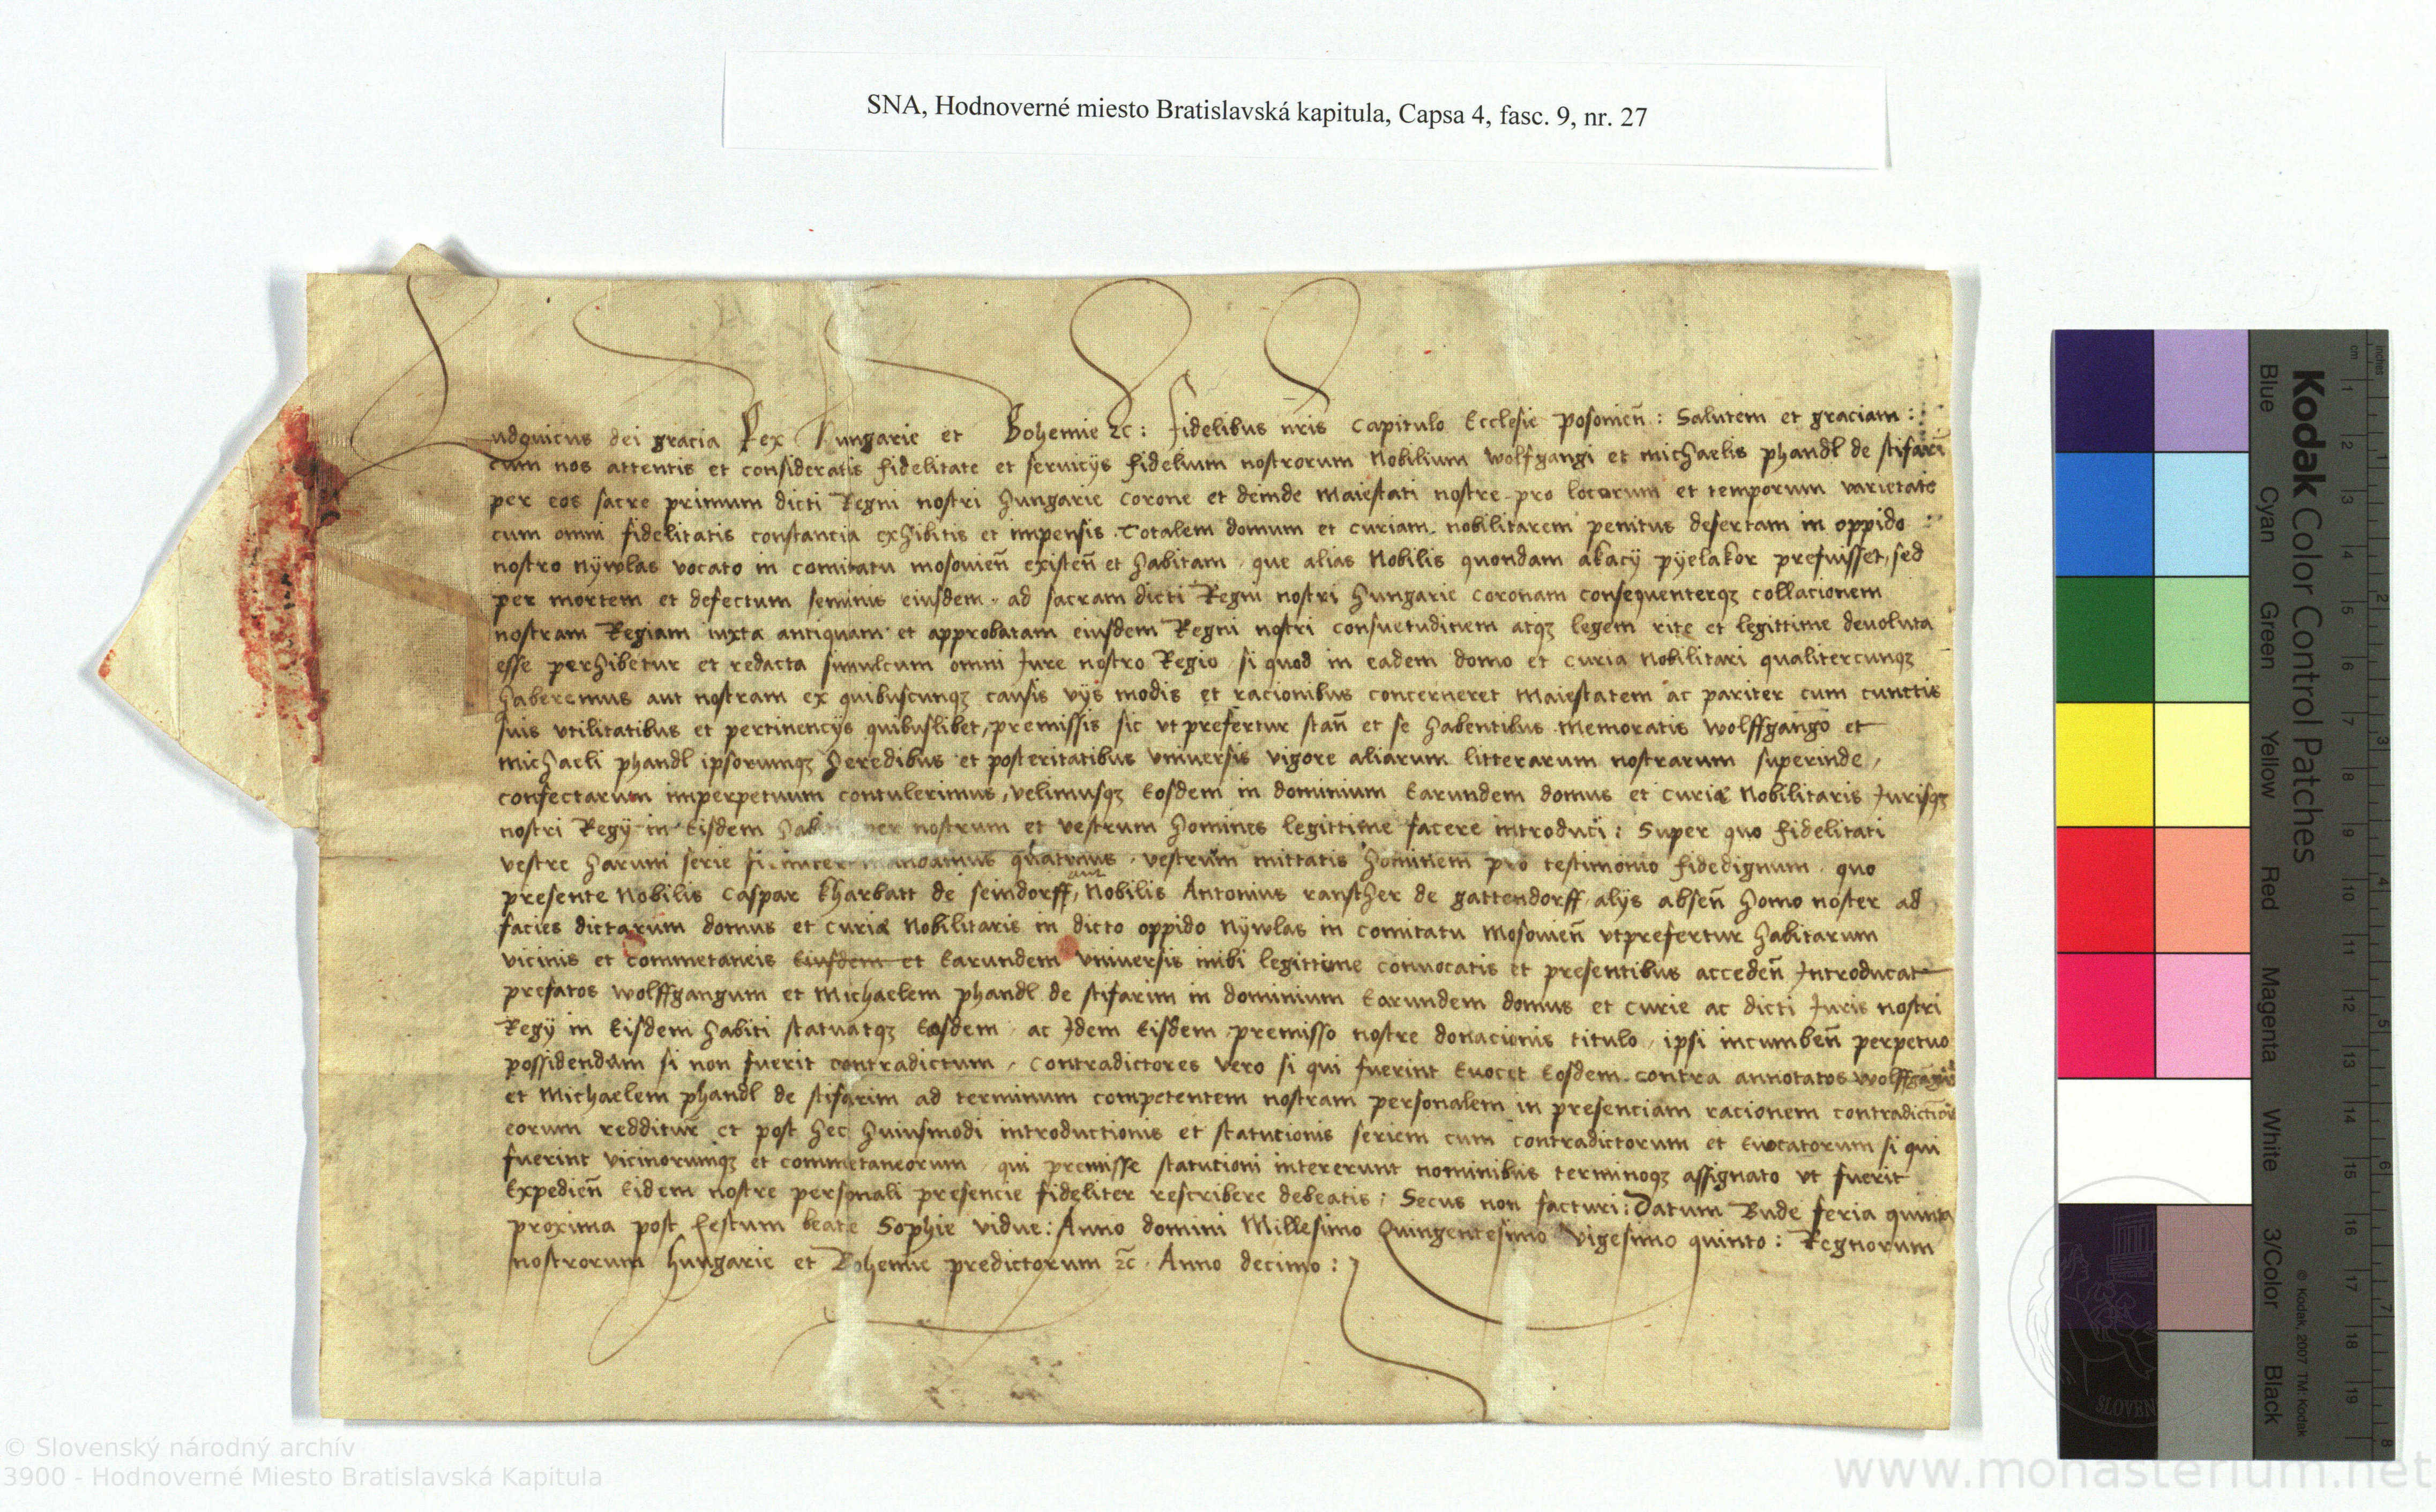 SNA, Hodnoverné miesto Bratislavská kapitula, Capsa 4, fasc. 9, nr. 27
udouicus dei gracia Rex Hungarie et Bohemie ꝛc : fidelibus nr̄is Capitulo Ecclesie Posonien̄ : Salutem et graciam :
cum nos attentis et consideratis fidelitate et seruicÿs fidelium nostrorum Nobilium Wolfgangi et michaelis phandl de stifarī
per eos sacre primum dicti Regni nostri Hungarie corone et deinde Maiestati nostre pro locorum et temporum varietate
cum omni fidelitatis constancia exhibitis et impensis . Totalem domum et curiam nobilitarem penitus desertam in oppido :
nostro Nÿwlas vocato in comitatu mosonien̄ existen̄ et habitam , que alias Nobilis quondam akacÿ pÿelakor prefuisset, sed
per mortem et defectum seminis eiusdem . ad sacram dicti Regni nostri Hungarie coronam consequenterqꝫ collacionem
nostram Regiam iuxta antiquam et approbatam eiusdem Regni nostri consuetudinem atqꝫ legem rite et legittime deuoluta
esse perhibetur et redacta simulcum omni Jure nostro Regio si quod in eadem domo et curia nobilitari qualitercunqꝫ
haberemus aut nostram ex quibuscunqꝫ causis vÿs modis et racionibus concerneret Maiestatem ac pariter cum cunctis
suis vtilitatibus et pertinencÿs quibuslibet, premissis sic vt prefertur stan̄ et se habentibus . Memoratis Wolffgango et
michaeli phandl ipsorumqꝫ heredibus et posteritatibus vniuersis vigore aliarum litterarum nostrarum superinde ,
confectarum imperpetuum contulerimus, velimusqꝫ Eosdem in dominium Earundem domus et curiæ Nobilitaris Jurisqꝫ
nostri Regÿ in Eisdem per nostrum et vestrum homines legittime facere introduci : Super quo fidelitati
vestre harum serie mandamus quatenus . vestrum mittatis hominem pro testimonio fidedignum . quo
presente Nobilis Caspar Kharbatt de seindorff, aut Nobilis Antonius ranscher de gattendorff alÿs absen̄ homo noster ad
facies dictarum domus et curiæ Nobilitaris in dicto oppido Nÿwlas in comitatu Mosonien̄ vtprefertur habitarum
vicinis et commetaneis Eiusdem et Earundem vniuersis inibi legittime conuocatis et presentibus acceden̄ Introducat
prefatos Wolffgangum et Michaelem phandl de stifarim in dominium Earundem domus et curie ac dicti Juris nostri
Regÿ in Eisdem habiti statuatqꝫ Eosdem , ac Idem Eisdem premisso nostre donacionis titulo , ipsi incumben̄ perpetuo
possidendam si non fuerit contradictum , Contradictores vero si qui fuerint Euocet Eosdem contra annotatos Wolffgangū
et Michaelem phandl de stifarim ad terminum competentem nostram personalem in presenciam racionem contradiction̄
eorum redditur̄ et post hec huiusmodi introductionis et statucionis seriem cum contradictorum et Euocatorum si qui
fuerint vicinorumqꝫ et commetaneorum , qui premisse statutioni intererunt nominibus terminoqꝫ assignato vt fuerit
Expedien̄ Eidem nostre personali presencie fideliter rescribere debeatis ; Secus non facturi : Datum Bude feria quinta
proxima post festum beate Sophie vidue : Anno domini Millesimo Quingentesimo vigesimo quinto : Regnorum
nostrorum Hungarie et Bohemie predictorum ꝛc . Anno decimo :
Kodak Color Control Patches
Blue Cyan Green Yellow Red Magenta White 3/Color Black
© Kodak, 2007 TM: Kodak
cm 1 2 3 4 5 6 7 8 9 10 11 12 13 14 15 16 17 18 19
inches 1 2 3 4 5 6 7 8
SLOVEN
© Slovenský národný archív
3900 - Hodnoverné Miesto Bratislavská Kapitula
www.monasterium.net